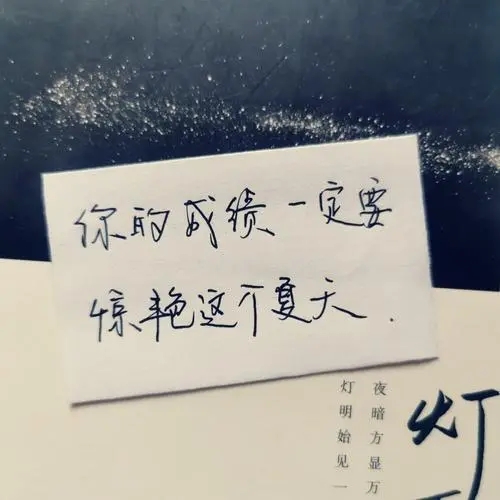 你的成绩一定要
惊艳这个夏天.
夜暗方显万
灯明始见一
灯